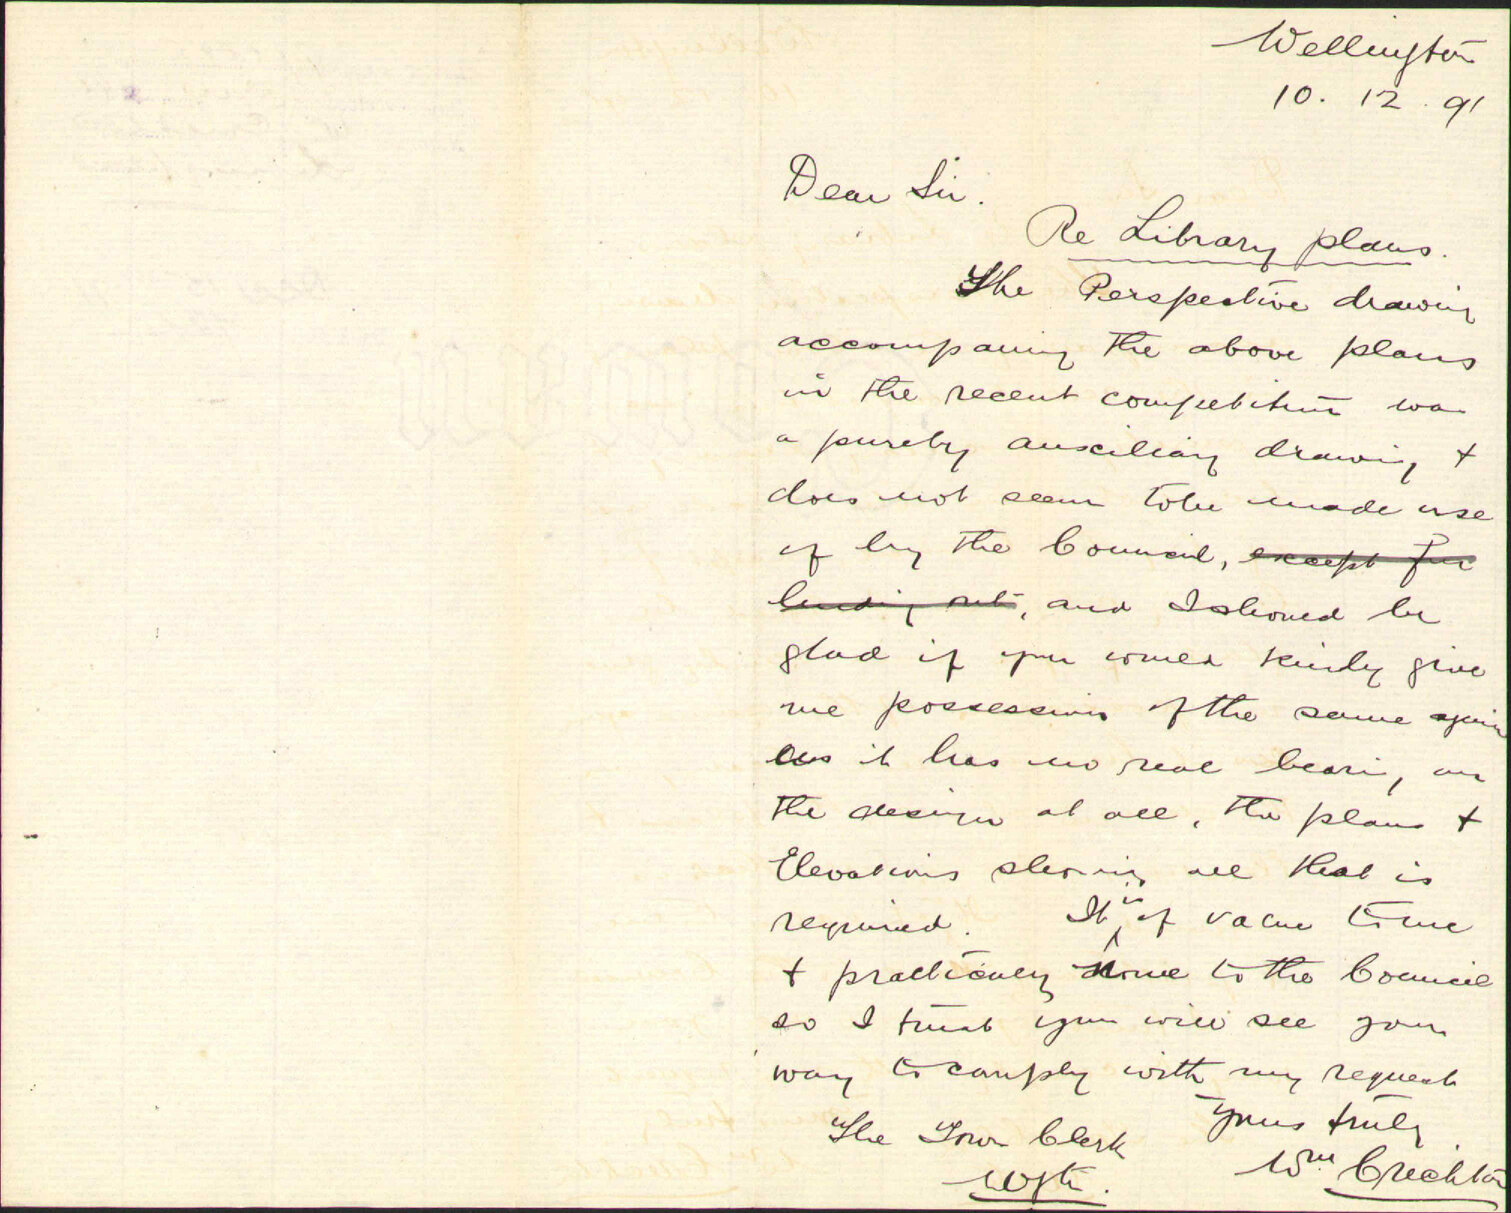 Wellington
10. 12. 91
Dear Sir.
Re Library plans.
The Perspective drawing
accompaning the above plans
in the recent competition was
a purely auxiliary drawing +
does not seem to be made use
of by the Council, except for
lending out, and I should be
glad if you would kindly give
me possession of the same again
as it has no real bearing on
the design at all, the plans +
Elevations showing all that is
required. It is of value to me
+ practically none to the Council
so I trust you will see your
way to comply with my request
Yours truly
The Town Clerk
Wm Crichton
Wgtn.